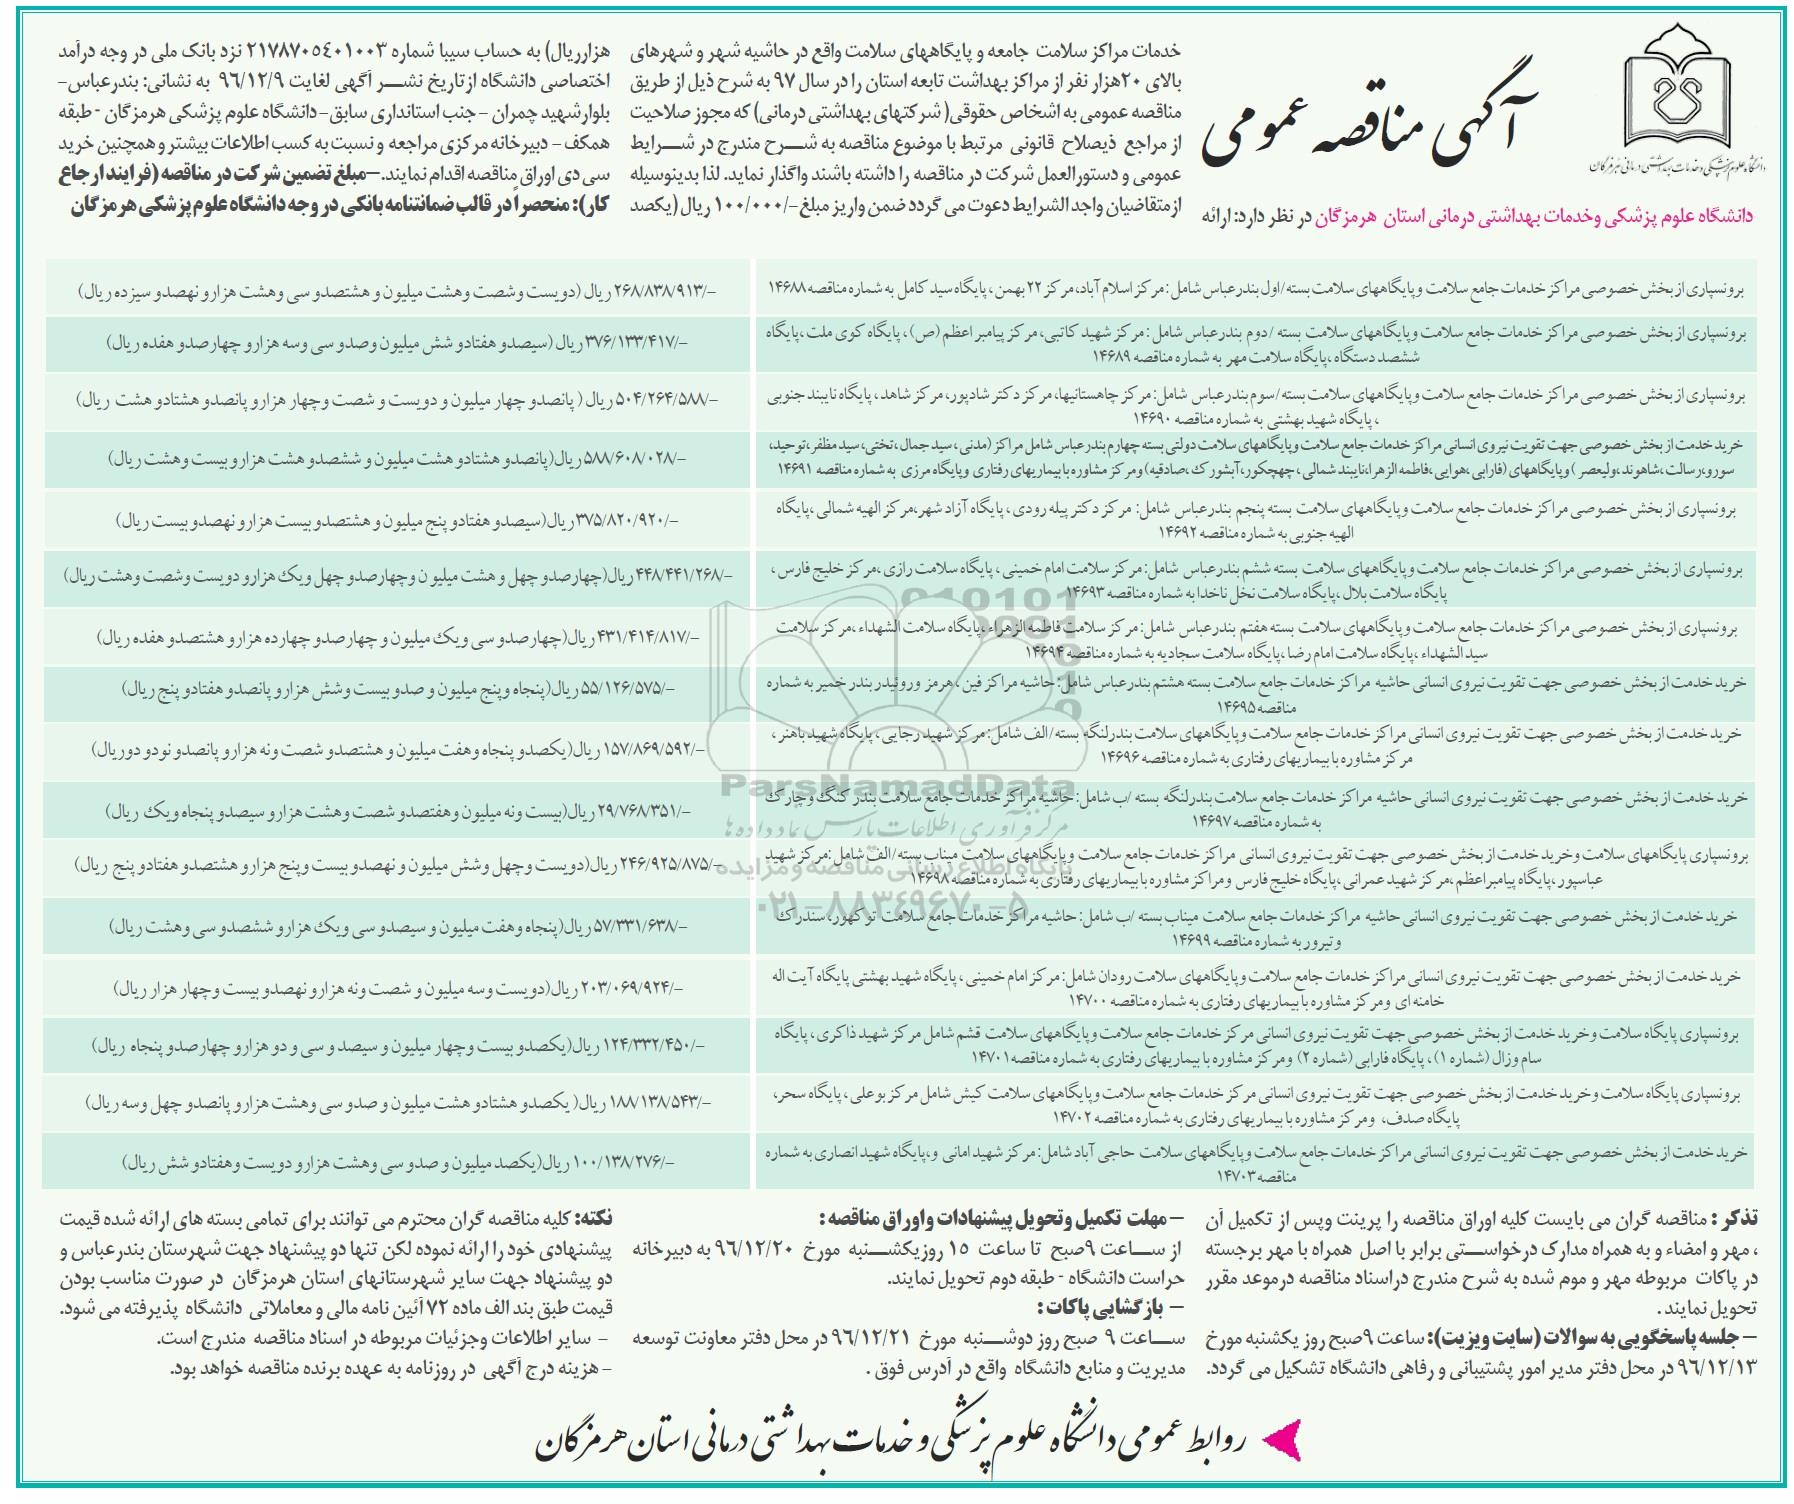 آگهی مناقصه عمومی
دانشگاه علوم پزشکی و خدمات بهداشتی درمانی هرمزگان
دانشگاه علوم پزشکی وخدمات بهداشتی درمانی استان هرمزگان در نظر دارد: ارائه
خدمات مراکز سلامت جامعه و پایگاههای سلامت واقع در حاشیه شهر و شهرهای
بالای ۲۰هزار نفر از مراکز بهداشت تابعه استان را در سال ۹۷ به شرح ذیل از طریق
مناقصه عمومی به اشخاص حقوقی( شرکتهای بهداشتی درمانی) که مجوز صلاحیت
از مراجع ذیصلاح قانونی مرتبط با موضوع مناقصه به شرح مندرج در شرایط
عمومی و دستورالعمل شرکت در مناقصه را داشته باشند واگذار نماید. لذا بدینوسیله
ازمتقاضیان واجد الشرایط دعوت می گردد ضمن واریز مبلغ -/۱۰۰/۰۰۰ ریال (یکصد
هزارریال) به حساب سیبا شماره ۲۱۷۸۷۰۵٤۰۱۰۰۳ نزد بانک ملی در وجه درآمد
اختصاصی دانشگاه ازتاریخ نشر آگهی لغایت ۹٦/۱۲/۹ به نشانی: بندرعباس-
بلوارشهید چمران - جنب استانداری سابق- دانشگاه علوم پزشکی هرمزگان - طبقه
همکف - دبیرخانه مرکزی مراجعه و نسبت به کسب اطلاعات بیشتر و همچنین خرید
سی دی اوراق مناقصه اقدام نمایند.-مبلغ تضمین شرکت در مناقصه (فرایند ارجاع
کار): منحصراً در قالب ضمانتنامه بانکی در وجه دانشگاه علوم پزشکی هرمزگان
برونسپاری از بخش خصوصی مراکز خدمات جامع سلامت وپایگاههای سلامت بسته/اول بندرعباس شامل: مرکز اسلام آباد، مرکز ۲۲ بهمن، پایگاه سید کامل به شماره مناقصه ۱۴۶۸۸
-/۲۶۸/۸۳۸/۹۱۳ ریال (دویست وشصت وهشت میلیون و هشتصدو سی وهشت هزارو نهصدو سیزده ریال)
برونسپاری از بخش خصوصی مراکز خدمات جامع سلامت وپایگاههای سلامت بسته /دوم بندرعباس شامل: مرکز شهید کاتبی، مرکز پیامبر اعظم (ص)، پایگاه کوی ملت ،پایگاه
ششصد دستگاه ،پایگاه سلامت مهر به شماره مناقصه ۱۴۶۸۹
-/۳۷۶/۱۳۳/۴۱۷ ریال (سیصدو هفتادو شش میلیون وصدو سی وسه هزارو چهارصدو هفده ریال)
برونسپاری از بخش خصوصی مراکز خدمات جامع سلامت وپایگاههای سلامت بسته/سوم بندرعباس شامل: مرکز چاهستانیها، مرکز دکتر شادپور، مرکز شاهد، پایگاه نایبند جنوبی
، پایگاه شهید بهشتی به شماره مناقصه ۱۴۶۹۰
-/۵۰۴/۲۶۴/۵۸۸ ریال ( پانصدو چهار میلیون و دویست و شصت وچهار هزارو پانصدو هشتادو هشت ریال)
خرید خدمت از بخش خصوصی جهت تقویت نیروی انسانی مراکز خدمات جامع سلامت وپایگاههای سلامت دولتی بسته چهارم بندرعباس شامل مراکز (مدنی ، سید جمال ،تختی، سید مظفر،توحید،
سورو، رسالت، شاهوند، ولیعصر ) وپایگاههای (فارابی، هوایی، فاطمه الزهرا، نایبند شمالی ، چهچکور، آبشورک ،صادقیه) ومرکز مشاوره با بیماریهای رفتاری وپایگاه مرزی به شماره مناقصه ۱۴۶۹۱
-/۵۸۸/۶۰۸/۰۲۸ ریال(پانصدو هشتادو هشت میلیون و ششصدو هشت هزارو بیست وهشت ریال)
برونسپاری از بخش خصوصی مراکز خدمات جامع سلامت وپایگاههای سلامت بسته پنجم بندرعباس شامل: مرکز دکتر پیله رودی ، پایگاه آزاد شهر، مرکز الهیه شمالی ،پایگاه
الهیه جنوبی به شماره مناقصه ۱۴۶۹۲
-/۳۷۵/۸۲۰/۹۲۰ ریال(سیصدو هفتادو پنج میلیون و هشتصدو بیست هزارو نهصدو بیست ریال)
برونسپاری از بخش خصوصی مراکز خدمات جامع سلامت وپایگاههای سلامت بسته ششم بندرعباس شامل: مرکز سلامت امام خمینی ، پایگاه سلامت رازی ،مرکز خلیج فارس ،
پایگاه سلامت بلال ،پایگاه سلامت نخل ناخدا به شماره مناقصه ۱۴۶۹۳
-/۴۴۸/۴۴۱/۲۶۸ ریال(چهارصدو چهل و هشت میلیون وچهارصدو چهل ویک هزارو دویست وشصت وهشت ریال)
برونسپاری از بخش خصوصی مراکز خدمات جامع سلامت وپایگاههای سلامت بسته هفتم بندرعباس شامل: مرکز سلامت فاطمه الزهراء ،پایگاه سلامت الشهداء ،مرکز سلامت
سید الشهداء ،پایگاه سلامت امام رضا ،پایگاه سلامت سجادیه به شماره مناقصه ۱۴۶۹۴
-/۴۳۱/۴۱۴/۸۱۷ ریال(چهارصدو سی ویک میلیون و چهارصدو چهارده هزارو هشتصدو هفده ریال)
خرید خدمت از بخش خصوصی جهت تقویت نیروی انسانی حاشیه مراکز خدمات جامع سلامت بسته هشتم بندرعباس شامل: حاشیه مراکز فین ، هرمز وروئیدر بندر خمیر به شماره
مناقصه ۱۴۶۹۵
-/۵۵/۱۲۶/۵۷۵ ریال(پنجاه وپنج میلیون و صدو بیست وشش هزارو پانصدو هفتادو پنج ریال)
خرید خدمت از بخش خصوصی جهت تقویت نیروی انسانی مراکز خدمات جامع سلامت وپایگاههای سلامت بندرلنگه بسته/الف شامل: مرکز شهید رجایی ، پایگاه شهید باهنر ،
مرکز مشاوره با بیماریهای رفتاری به شماره مناقصه ۱۴۶۹۶
-/۱۵۷/۸۶۹/۵۹۲ ریال(یکصدو پنجاه وهفت میلیون و هشتصدو شصت ونه هزارو پانصدو نودو دوریال)
خرید خدمت از بخش خصوصی جهت تقویت نیروی انسانی حاشیه مراکز خدمات جامع سلامت بندرلنگه بسته /ب شامل: حاشیه مراکز خدمات جامع سلامت بندر کنگ وچارک
به شماره مناقصه ۱۴۶۹۷
-/۲۹/۷۶۸/۳۵۱ ریال(بیست ونه میلیون وهفتصدو شصت وهشت هزارو سیصدو پنجاه ویک ریال)
برونسپاری پایگاههای سلامت وخرید خدمت از بخش خصوصی جهت تقویت نیروی انسانی مراکز خدمات جامع سلامت وپایگاههای سلامت میناب بسته/الف شامل:مرکز شهید
عباسپور ،پایگاه پیامبراعظم ،مرکز شهید عمرانی ،پایگاه خلیج فارس ومراکز مشاوره با بیماریهای رفتاری به شماره مناقصه ۱۴۶۹۸
-/۲۴۶/۹۲۵/۸۷۵ ریال(دویست وچهل وشش میلیون و نهصدو بیست وپنج هزارو هشتصدو هفتادو پنج ریال)
خرید خدمت از بخش خصوصی جهت تقویت نیروی انسانی حاشیه مراکز خدمات جامع سلامت میناب بسته /ب شامل: حاشیه مراکز خدمات جامع سلامت توکهور، سندرک
وتیرور به شماره مناقصه ۱۴۶۹۹
-/۵۷/۳۳۱/۶۳۸ ریال(پنجاه وهفت میلیون و سیصدو سی ویک هزارو ششصدو سی وهشت ریال)
خرید خدمت از بخش خصوصی جهت تقویت نیروی انسانی مراکز خدمات جامع سلامت وپایگاههای سلامت رودان شامل: مرکز امام خمینی ، پایگاه شهید بهشتی پایگاه آیت اله
خامنه ای ومرکز مشاوره با بیماریهای رفتاری به شماره مناقصه ۱۴۷۰۰
-/۲۰۳/۰۶۹/۹۲۴ ریال(دویست وسه میلیون و شصت ونه هزارو نهصدو بیست وچهار هزار ریال)
برونسپاری پایگاه سلامت وخرید خدمت از بخش خصوصی جهت تقویت نیروی انسانی مرکز خدمات جامع سلامت وپایگاههای سلامت قشم شامل مرکز شهید ذاکری ، پایگاه
سام وزال (شماره ۱) ، پایگاه فارابی (شماره ۲) ومرکز مشاوره با بیماریهای رفتاری به شماره مناقصه ۱۴۷۰۱
-/۱۲۴/۳۳۲/۴۵۰ ریال(یکصدو بیست وچهار میلیون و سیصد و سی و دو هزارو چهارصدو پنجاه ریال)
برونسپاری پایگاه سلامت وخرید خدمت از بخش خصوصی جهت تقویت نیروی انسانی مرکز خدمات جامع سلامت وپایگاههای سلامت کیش شامل مرکز بوعلی ، پایگاه سحر،
پایگاه صدف، ومرکز مشاوره با بیماریهای رفتاری به شماره مناقصه ۱۴۷۰۲
-/۱۸۸/۱۳۸/۵۴۳ ریال( یکصدو هشتادو هشت میلیون و صدو سی وهشت هزارو پانصدو چهل وسه ریال)
خرید خدمت از بخش خصوصی جهت تقویت نیروی انسانی مراکز خدمات جامع سلامت وپایگاههای سلامت حاجی آباد شامل: مرکز شهید امانی و،پایگاه شهید انصاری به شماره
مناقصه ۱۴۷۰۳
-/۱۰۰/۱۳۸/۲۷۶ ریال(یکصد میلیون و صدو سی وهشت هزارو دویست وهفتادو شش ریال)
010101
0001
0
1
0
ParsNamadData
مرکز فرآوری اطلاعات پارس نماد داده ها
پایگاه اطلاع رسانی مناقصه و مزایده
۰۲۱-۸۸۳٤۹٦۷۰-۵
تذکر : مناقصه گران می بایست کلیه اوراق مناقصه را پرینت وپس از تکمیل آن
، مهر و امضاء و به همراه مدارک درخواستی برابر با اصل همراه با مهر برجسته
در پاکات مربوطه مهر و موم شده به شرح مندرج دراسناد مناقصه درموعد مقرر
تحویل نمایند .
- جلسه پاسخگویی به سوالات (سایت ویزیت): ساعت ۹صبح روز یکشنبه مورخ
۹٦/۱۲/۱۳ در محل دفتر مدیر امور پشتیبانی و رفاهی دانشگاه تشکیل می گردد.
- مهلت تکمیل وتحویل پیشنهادات واوراق مناقصه :
از ساعت ۹صبح تا ساعت ۱۵ روزیکشنبه مورخ ۹٦/۱۲/۲۰ به دبیرخانه
حراست دانشگاه - طبقه دوم تحویل نمایند.
- بازگشایی پاکات :
ساعت ۹ صبح روز دوشنبه مورخ ۹٦/۱۲/۲۱ در محل دفتر معاونت توسعه
مدیریت و منابع دانشگاه واقع در آدرس فوق .
نکته: کلیه مناقصه گران محترم می توانند برای تمامی بسته های ارائه شده قیمت
پیشنهادی خود را ارائه نموده لکن تنها دو پیشنهاد جهت شهرستان بندرعباس و
دو پیشنهاد جهت سایر شهرستانهای استان هرمزگان در صورت مناسب بودن
قیمت طبق بند الف ماده ۷۲ آئین نامه مالی و معاملاتی دانشگاه پذیرفته می شود.
- سایر اطلاعات وجزئیات مربوطه در اسناد مناقصه مندرج است.
- هزینه درج آگهی در روزنامه به عهده برنده مناقصه خواهد بود.
روابط عمومی دانشگاه علوم پزشکی و خدمات بهداشتی درمانی استان هرمزگان